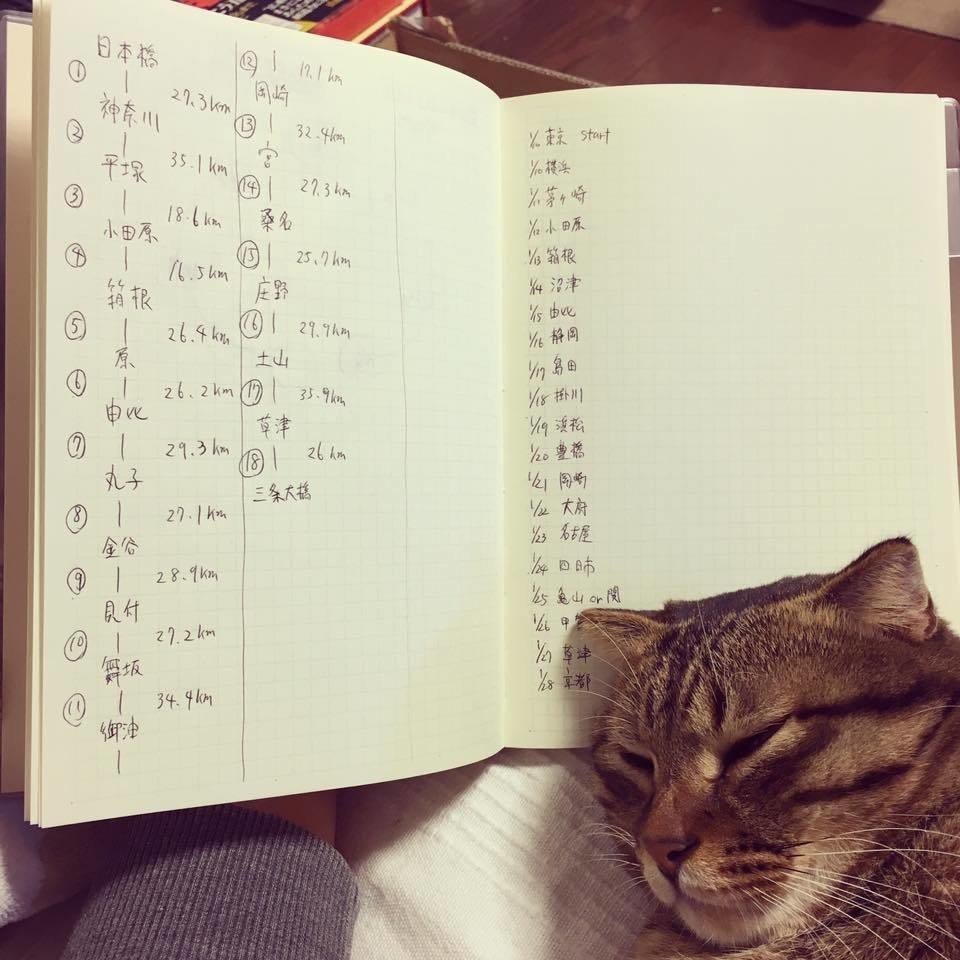 日本橋
① |
27.3km
神奈川
② |
35.1km
平塚
③ |
18.6km
小田原
④ |
16.5km
箱根
⑤ |
26.4km
原
⑥ |
26.2km
由比
⑦ |
29.3km
丸子
⑧ |
27.1km
金谷
⑨ |
28.9km
見付
⑩ |
27.2km
舞坂
⑪ |
34.4km
御油
|
⑫ | 17.1km
岡崎
⑬ | 32.4km
宮
⑭ | 27.3km
桑名
⑮ | 25.7km
庄野
⑯ | 29.9km
土山
⑰ | 35.9km
草津
⑱ | 26km
三条大橋
東京 start
1/10 横浜
1/11 茅ヶ崎
1/12 小田原
1/13 箱根
1/14 沼津
1/15 由比
1/16 静岡
1/17 島田
1/18 掛川
1/19 浜松
1/20 豊橋
1/21 岡崎
1/22 大府
1/23 名古屋
1/24 四日市
1/25 亀山 or 関
1/26 甲
1/27 草津
1/28 京都